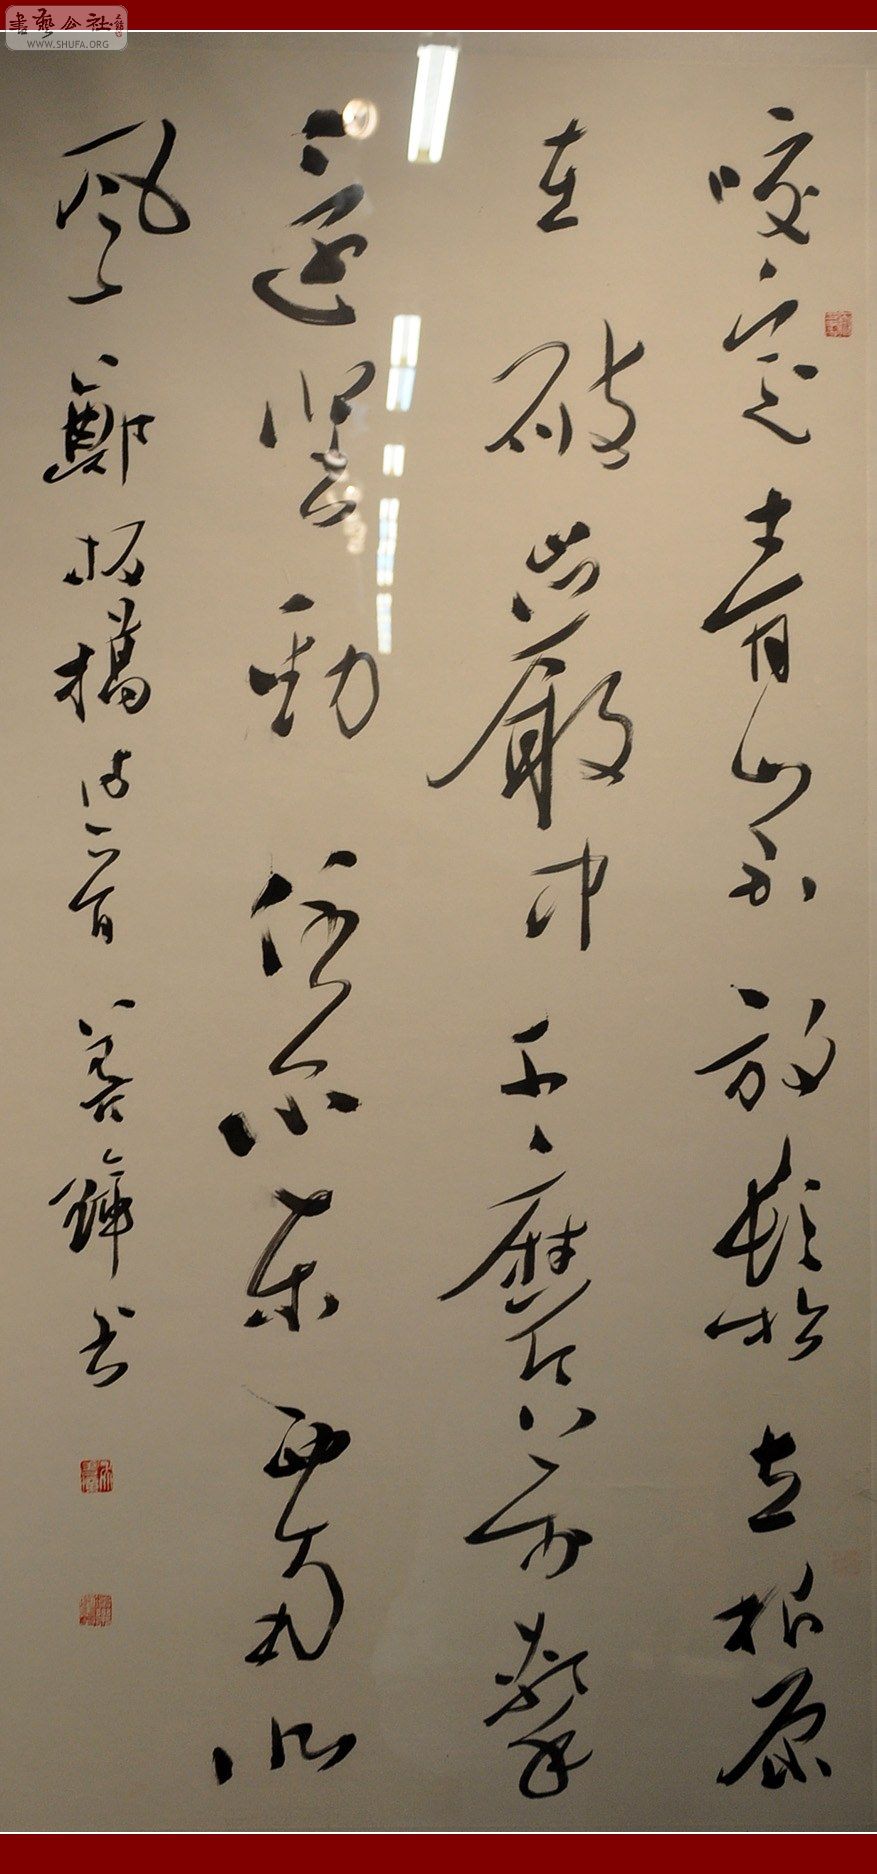 書藝公社
WWW.SHUFA.ORG
咬定青山不放鬆立根原
在破巖中千磨万擊
還堅勁任尔東西南北
風 鄭板橋詩一首 善 書